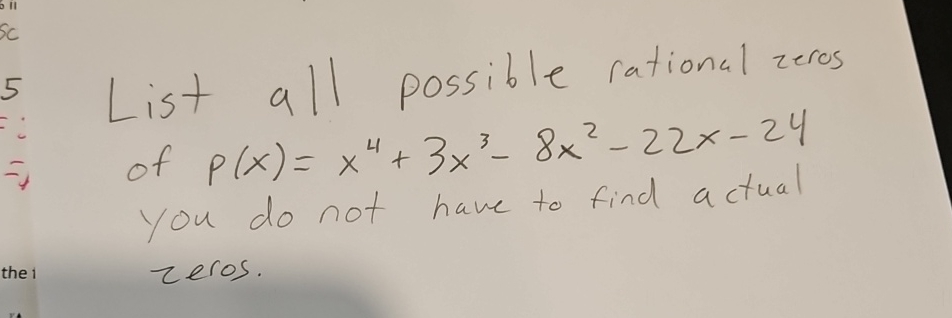 sc
5
the
List all possible rational zeros
of p(x) = x⁴ + 3x³ - 8x² - 22x - 24
you do not have to find actual
zeros.